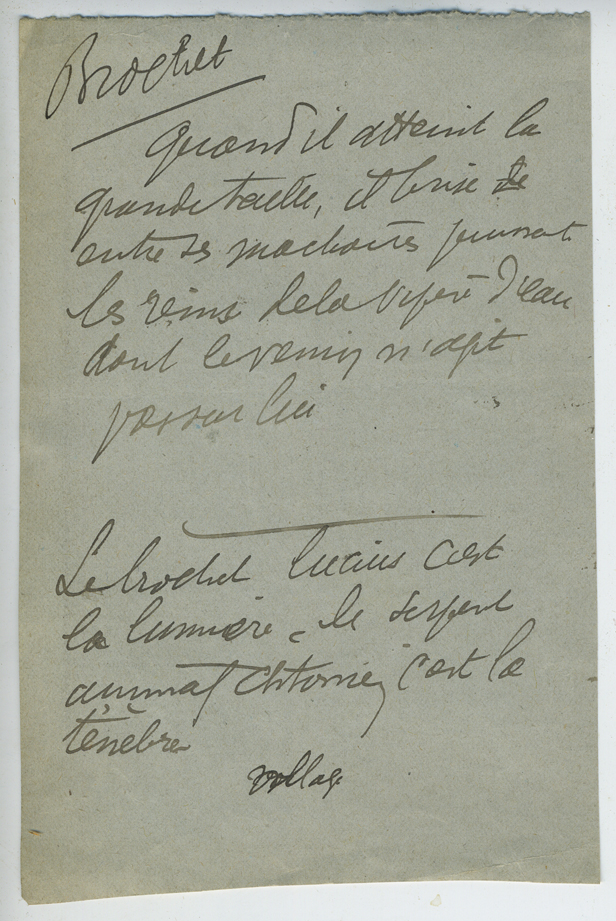 Brochet
Quand il atteint la
grande taille, il brise
entre ses machoires puissantes
les reins de la vipère d'eau
dont le venin n'agit
pas sur lui
Le brochet lucius c'est
la lumière - le serpent
animal chtonien c'est la
ténèbre